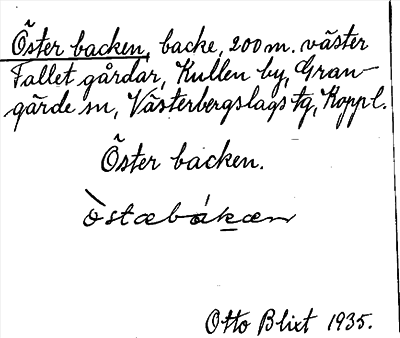 Öster backen, backe, 200 m. väster
Fallet gårdar, Kullen by, Gran-
gärde sn, Västerbergslags tg, Koppl.
Öster backen.
òstæbákæn
Otto Blixt 1935.